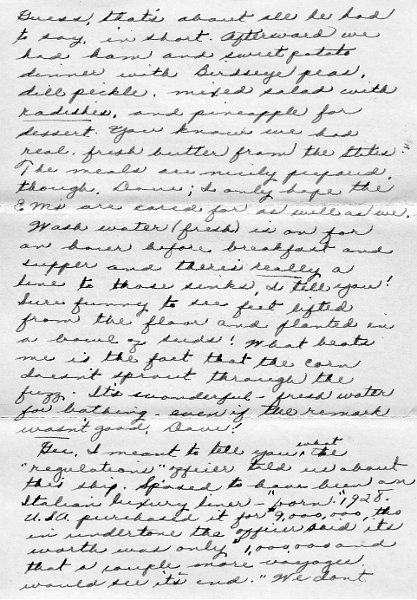 Guess, that's about all he had
to say, in short. Afterward we
had ham and sweet potato
dinner with Birdseye peas,
dill pickle, mixed salad with
radishes, and pineapple for
dessert. You know we had
real, fresh butter from the States.
The meals are nicely prepared,
though, Dave; I only hope the
EMs are cared for as well as we.
Wash water (fresh) is on for
an hour before breakfast and
supper and there's really a
line to those sinks, I tell you!
Sure funny to see feet lifted
from the floor and planted in
a bowl of suds! What beats
me is the fact that the corn
doesn't sprout through the
fuzz. It's wonderful - fresh water
for bathing - even if the remark
wasn't good, Dave!
Gee, I meant to tell you, what the
"regulations" officer told us about
this ship. S'posed to have been an
Italian luxury liner - "born" 1928.
U.S.A. purchased it for 9,000,000, tho
in undertone the officer said its
worth was only "1,000,000 and
that a couple more voyages
would see it's end." We don't